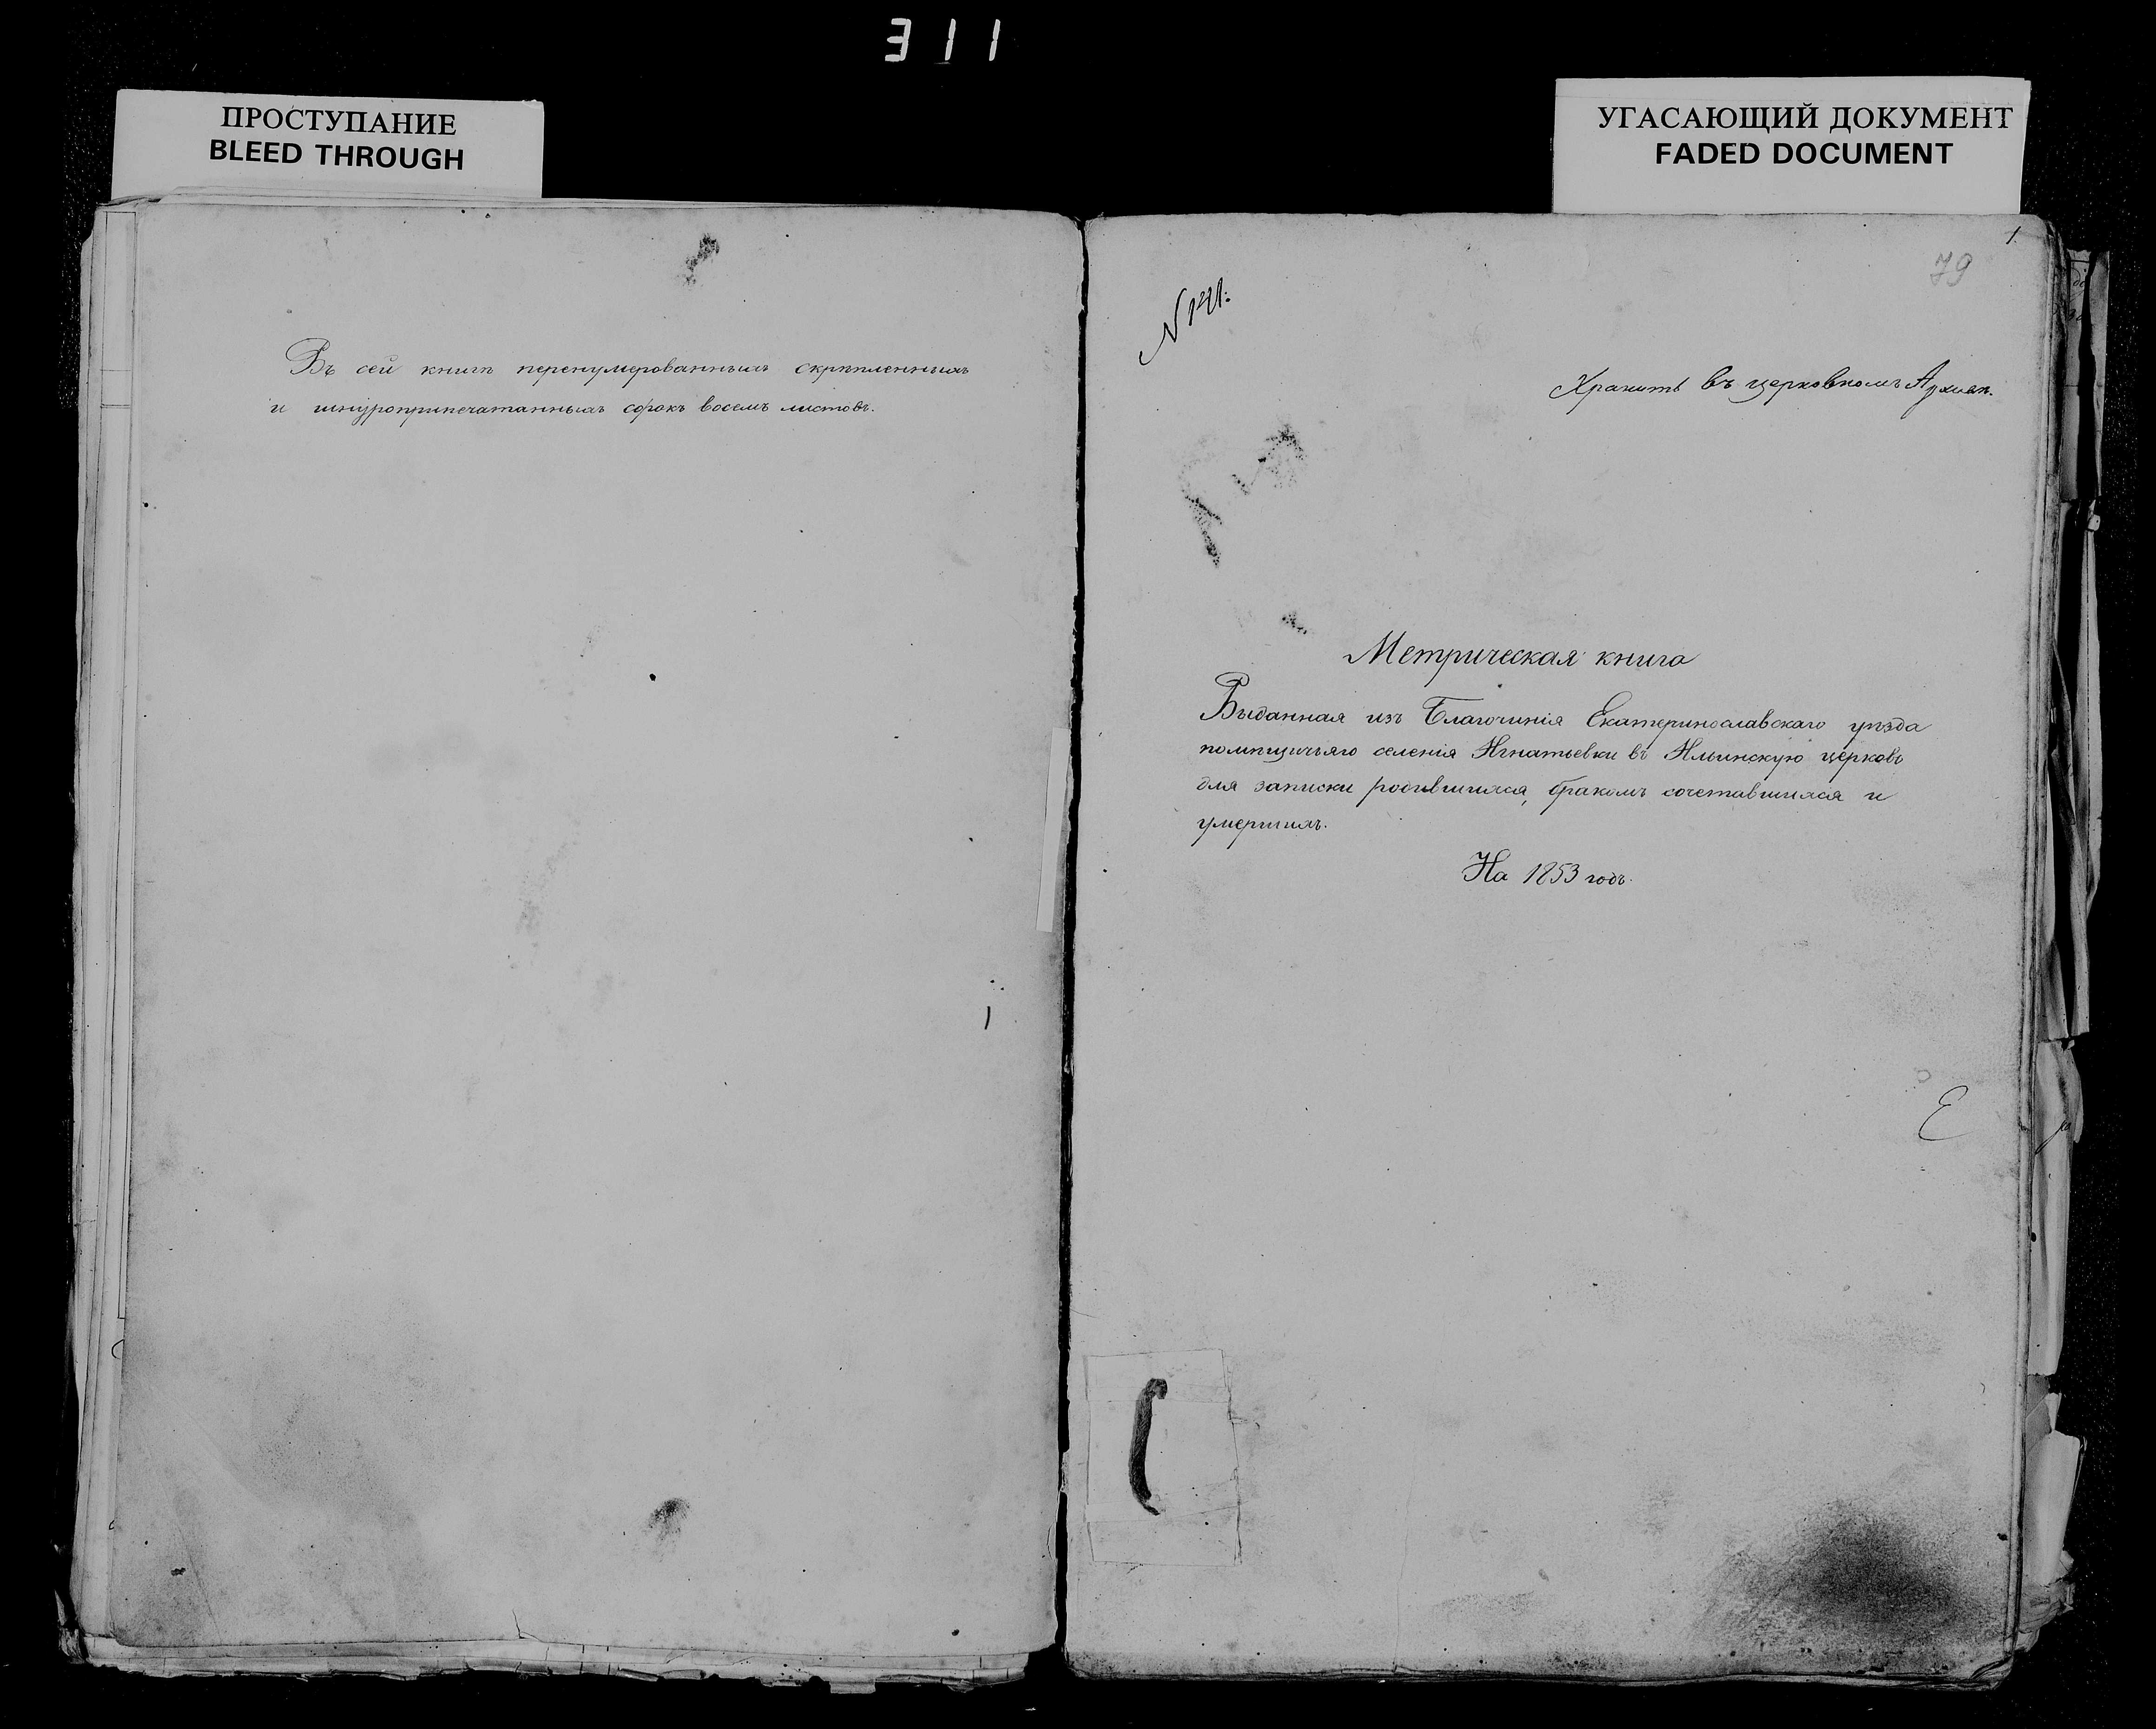 311
ПРОСТУПАНИЕ
BLEED THROUGH
УГАСАЮЩИЙ ДОКУМЕНТ
FADED DOCUMENT
Въ сей книгѣ перенумерованныхъ скрѣпленныхъ
и шнуроприпечатанныхъ сорокъ восемъ листовъ.
1.
79
N
Хранить въ церковномъ Архивѣ.
Метрическая книга
Выданная изъ Благочинія Екатеринославскаго уѣзда
помѣщичьяго селенія Игнатьевки въ Ильинскую церковь
для записки родившихся, бракомъ сочетавшихся и
умершихъ.
На 1853 годъ.